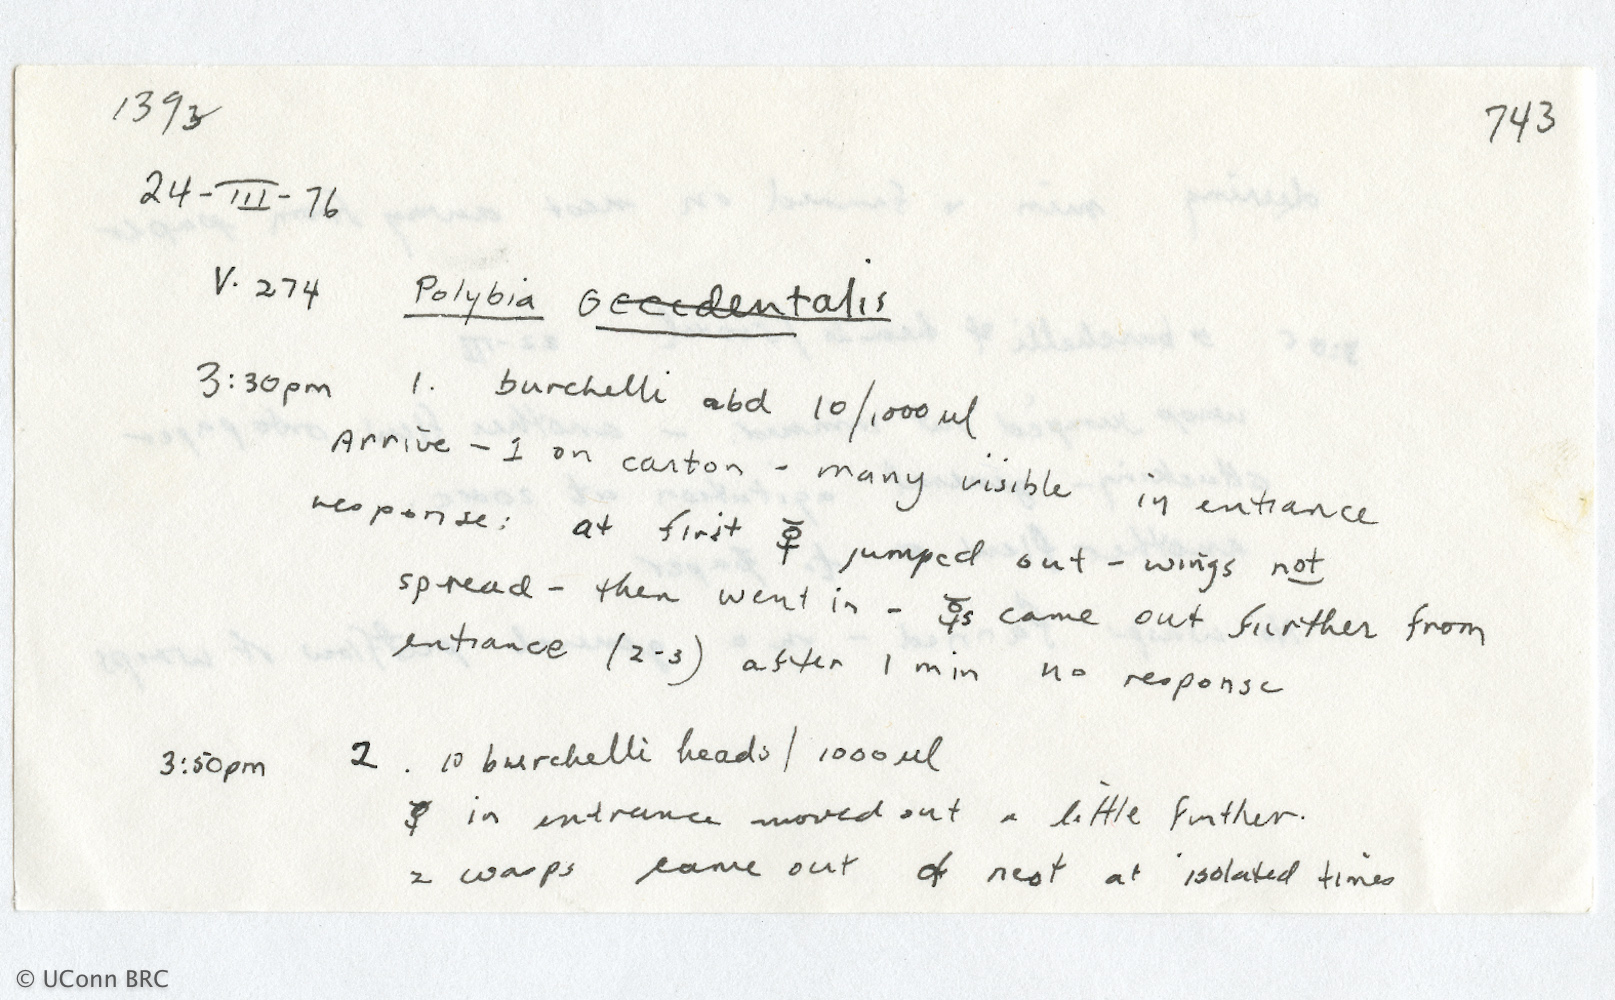 1393
743
24-III-76
V. 274 Polybia Occidentalis
3:30pm 1. burchelli abd 10/1000 ul
Arrive - 1 on carton - many visible in entrance
response: at first ☿ jumped out - wings not
spread - then went in - ☿s came out further from
entrance (2-3) after 1 min no response
3:50pm 2. 10 burchelli heads/1000 ul
☿ in entrance moved out a little further.
2 wasps came out of nest at isolated times
© UConn BRC